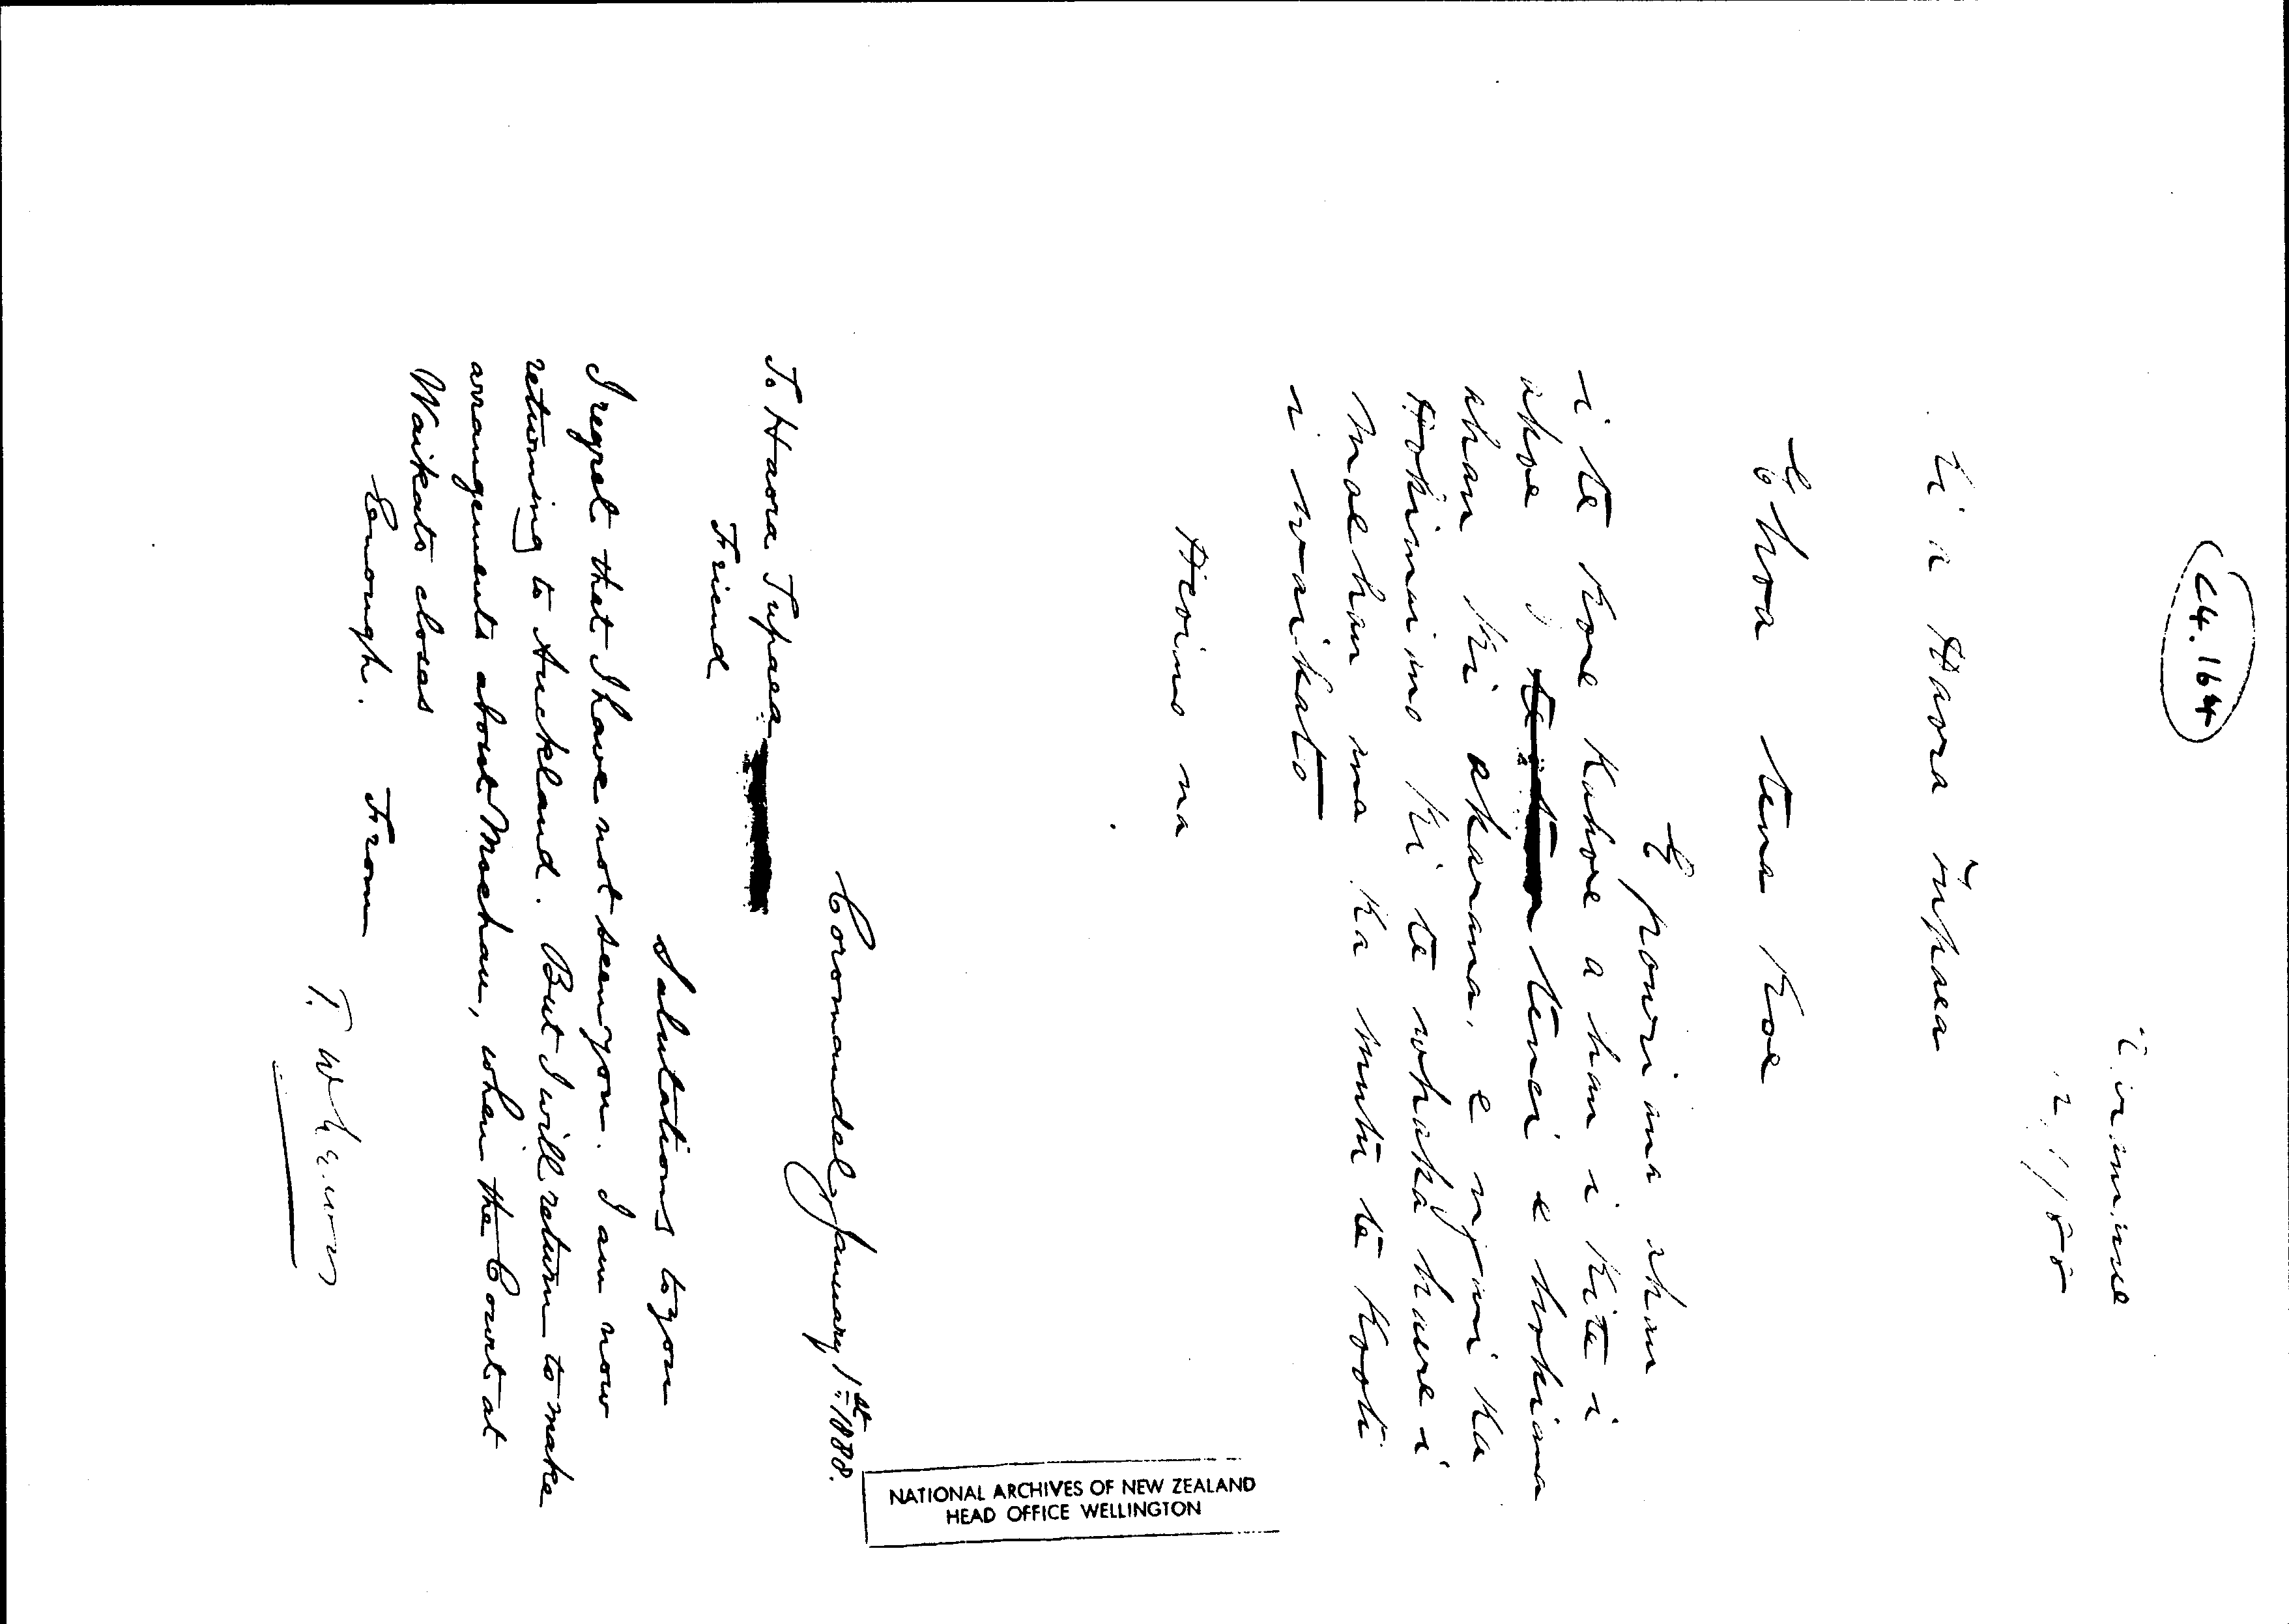 C4.164
1/1/88
Ki a Haora Tupaea
E hoa tena koe
E pouri ana ahau
i te kore kahore a hau i kite i
akoe tenei e hokiana
ahau ki akarana, e ngari ka
Hokimaiano ki te whaka haere i
Moehau ma ka mutu te kooti
i waikato
Heoino na
Coromandel January 1st 1888.
To Haora Tupaea
Friend
Salutations to you
I regret that I have not seen you. I am now
returning to Auckland. But I will return to make
arrangements about Moehau, when the Court at
Waikato closes
Enough. From
NATIONAL ARCHIVES OF NEW ZEALAND
HEAD OFFICE WELLINGTON